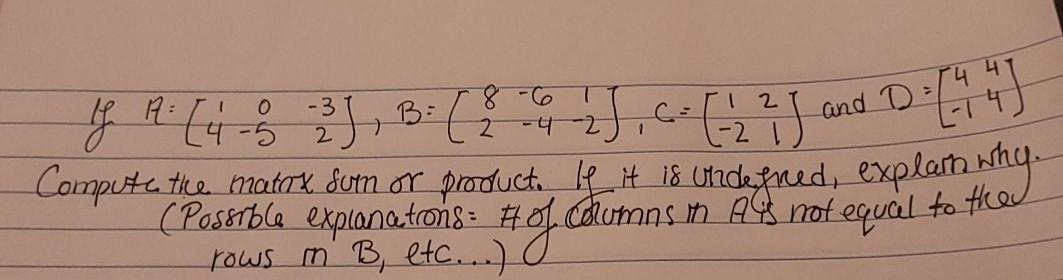 If A = [1 0 -3 / 4 -5 2], B = [8 -6 1 / 2 -4 -2], C = [1 2 / -2 1] and D = [4 4 / -1 4]
Compute the matrix sum or product. If it is undefined, explain why.
(Possible explanations: # of columns in A is not equal to the
rows in B, etc...)